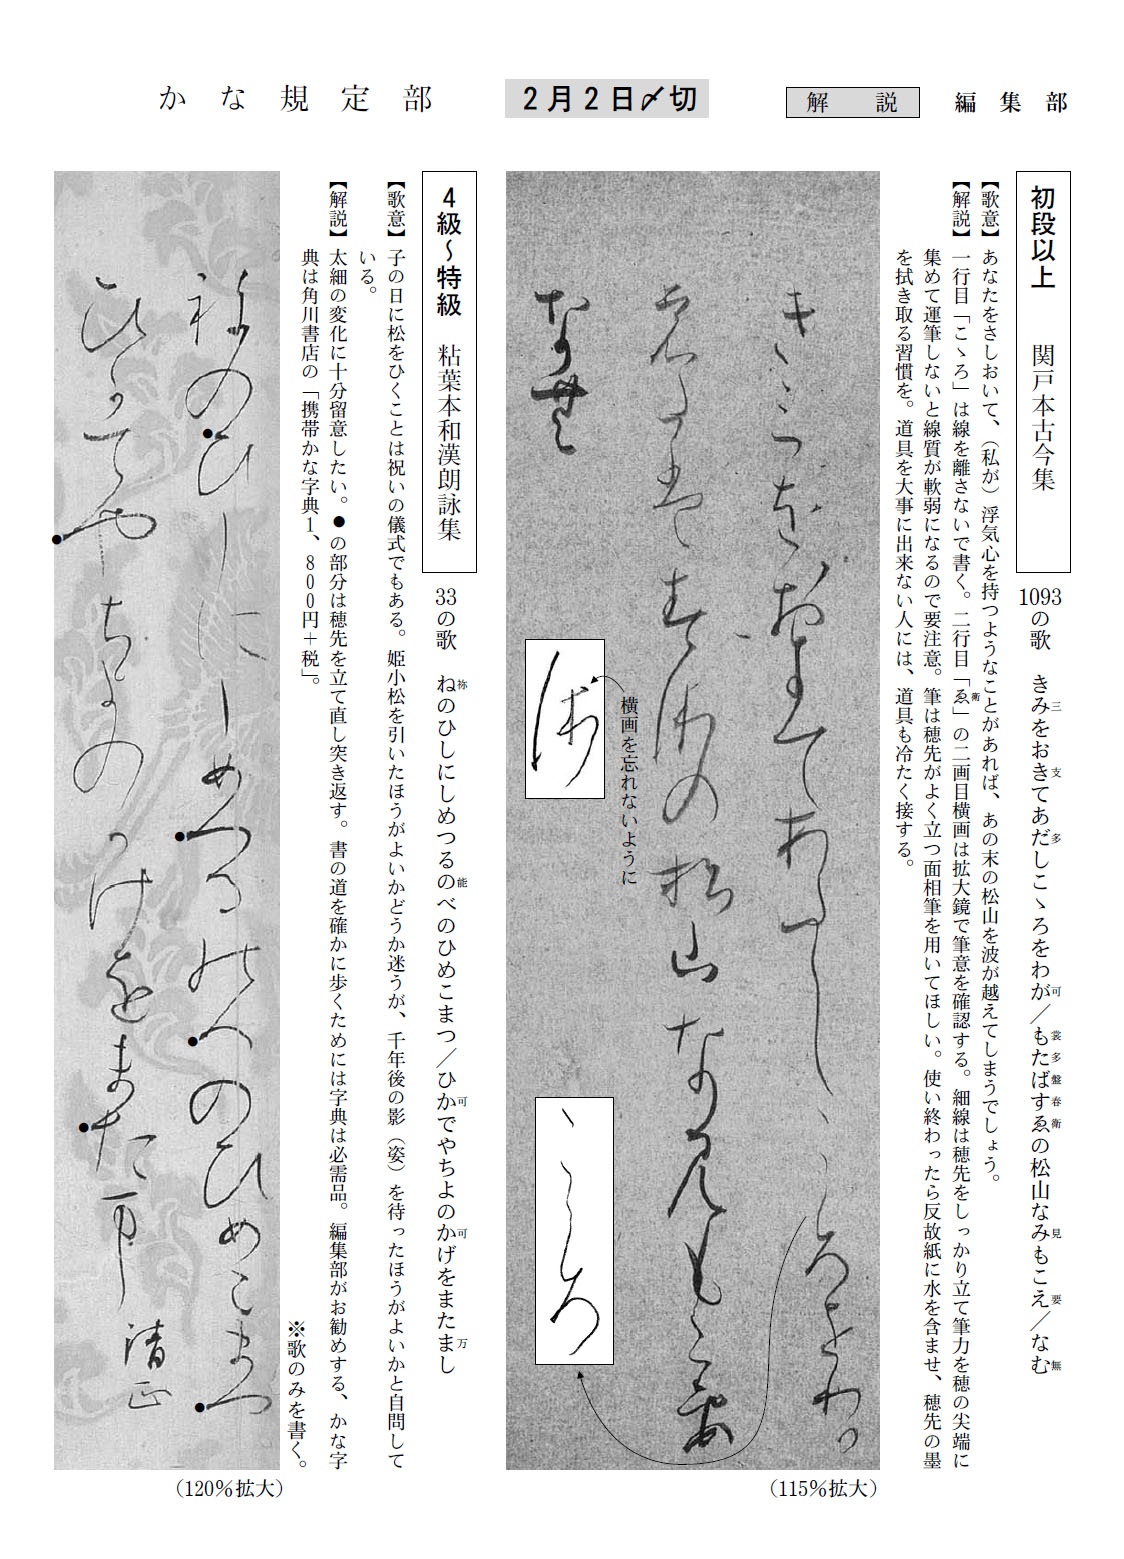 かな規定部
2月2日〆切
解説
編集部
初段以上 関戸本古今集
1093の歌 きみをおきてあだしこゝろをわが／もたばすゑの松山なみもこえ／なむ
三 支 多 可 裳 多 盤 春 衛 見 要 無
【歌意】あなたをさしおいて、（私が）浮気心を持つようなことがあれば、あの末の松山を波が越えてしまうでしょう。
【解説】一行目「こゝろ」は線を離さないで書く。二行目「ゑ」の二画目横画は拡大鏡で筆意を確認する。細線は穂先をしっかり立て筆力を穂の尖端に
衛
集めて運筆しないと線質が軟弱になるので要注意。筆は穂先がよく立つ面相筆を用いてほしい。使い終わったら反故紙に水を含ませ、穂先の墨
を拭き取る習慣を。道具を大事に出来ない人には、道具も冷たく接する。
きみをおきてあだしこゝろをわか
裳多盤春衛の松山なみもこ要
なむ
横画を忘れないように
衛
こゝろ
（115％拡大）
4級～特級 粘葉本和漢朗詠集
33の歌 ねのひしにしめつるのべのひめこまつ／ひかでやちよのかげをまたまし
祢 能 可 可 万
【歌意】子の日に松をひくことは祝いの儀式でもある。姫小松を引いたほうがよいかどうか迷うが、千年後の影（姿）を待ったほうがよいかと自問して
いる。
【解説】太細の変化に十分留意したい。●の部分は穂先を立て直し突き返す。書の道を確かに歩くためには字典は必需品。編集部がお勧めする、かな字
典は角川書店の「携帯かな字典1、800円＋税」。
※歌のみを書く。
祢のひしにしめつる能へのひめこまつ
ひ可てやちよの可けをまた万し 清正
（120％拡大）